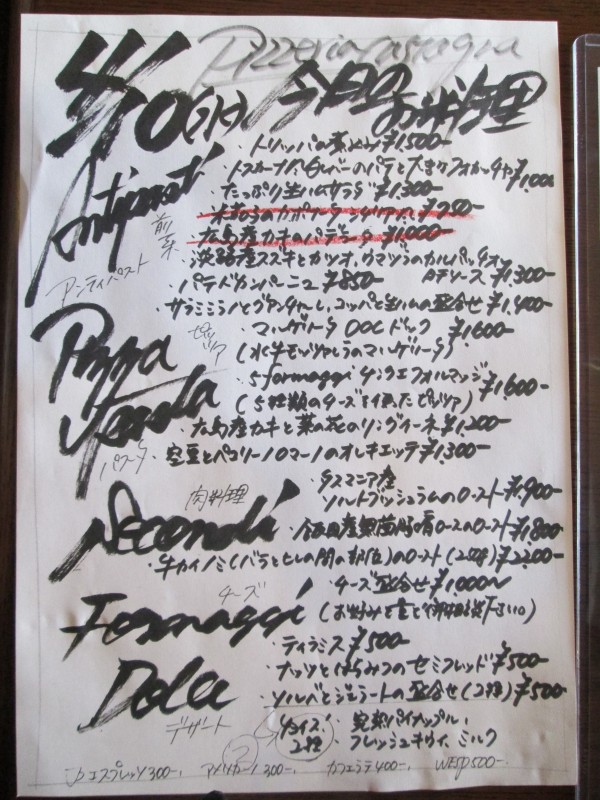 Pizzeria
4/10(水) 今日のお料理
Antipasti
前菜
アンティパスト
・トリッパの煮込み ¥1500-
・トスカーナ風 白レバーのパテと大麦フォカッチャ ¥1000
・たっぷり生ハムサラダ ¥1300-
¥750-
・広島産カキの ¥1000-
・淡路産スズキとカツオ、ウマヅラのカルパッチョ ¥1300-
・パテドカンパーニュ ¥850-
・サラミミラノとグアンチャーレ、コッパと生ハムの盛合せ ¥1400-
Pizza
ピッツァ
・マルゲリータ DOC ドック ¥1600-
(水牛モッツァレラのマルゲリータ)
・5 formaggi チンクエフォルマッジ ¥1600-
(5種類のチーズを使ったピッツァ)
Pasta
パスタ
・広島産カキと菜の花のリングイーネ ¥1200-
・空豆とペコリーノロマーノのオレキエッテ ¥1300-
Secondi
肉料理
・タスマニア産
ソルトブッシュラムのロースト ¥1900-
産 豚肩ロースのロースト ¥1800-
・牛カイノミ(バラとヒレの間の部位)のロースト ¥2200-
Formaggi
チーズ
・チーズ盛合せ ¥1000〜
(お好み等ご相談下さい。)
Dolce
デザート
・ティラミス ¥500-
・ナッツとはちみつのセミフレッド ¥500-
・ソルベとジェラートの盛合せ(2種) ¥500-
チョイス 2種
・完熟パイナップル、
・フレッシュキウイ、ミルク
エスプレッソ300-, アメリカーノ300-, カフェラテ400-,